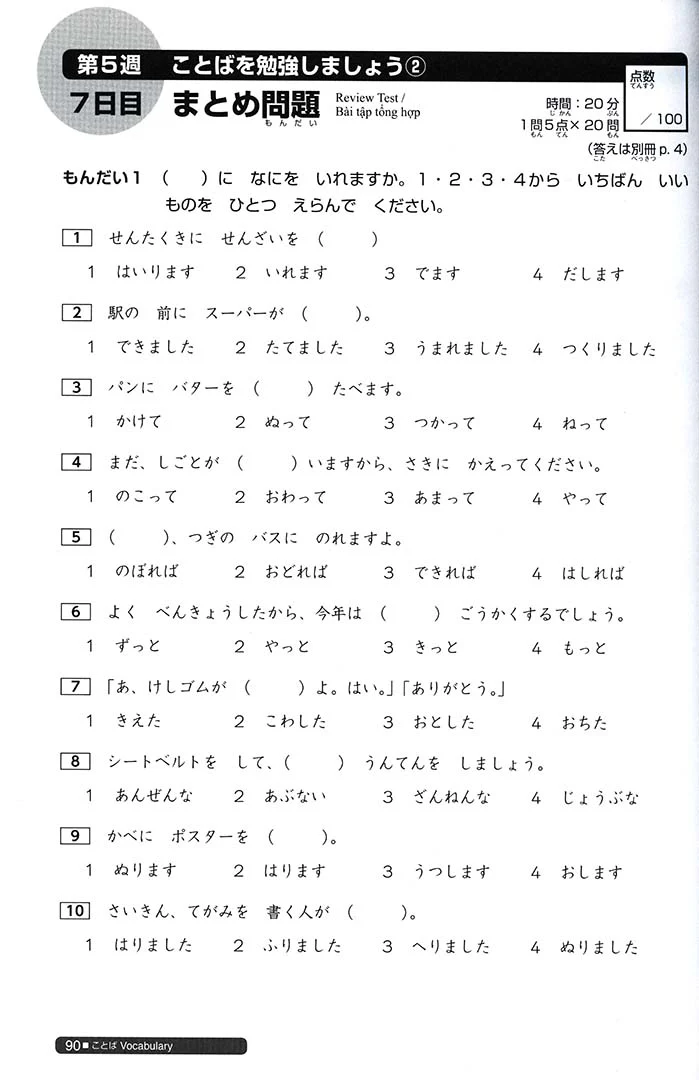 第5週 ことばを勉強しましょう②
7日目 まとめ問題 もんだい
Review Test /
Bài tập tổng hợp
点数 てんすう
／100
時間：20分 じかん ぷん
1問5点×20問 もん てん もん
（答えは別冊p.4） こた べっさつ
もんだい1 （　）に なにを いれますか。1・2・3・4から いちばん いい
ものを ひとつ えらんで ください。
1 せんたくきに せんざいを （　）
1 はいります 2 いれます 3 でます 4 だします
2 駅の 前に スーパーが （　）。
1 できました 2 たてました 3 うまれました 4 つくりました
3 パンに バターを （　） たべます。
1 かけて 2 ぬって 3 つかって 4 ねって
4 まだ、しごとが （　）いますから、さきに かえってください。
1 のこって 2 おわって 3 あまって 4 やって
5 （　）、つぎの バスに のれますよ。
1 のぼれば 2 おどれば 3 できれば 4 はしれば
6 よく べんきょうしたから、今年は （　） ごうかくするでしょう。
1 ずっと 2 やっと 3 きっと 4 もっと
7 「あ、けしゴムが （　）よ。はい。」「ありがとう。」
1 きえた 2 こわした 3 おとした 4 おちた
8 シートベルトを して、（　） うんてんを しましょう。
1 あんぜんな 2 あぶない 3 ざんねんな 4 じょうぶな
9 かべに ポスターを （　）。
1 ぬります 2 はります 3 うつします 4 おします
10 さいきん、てがみを 書く人が （　）。
1 はりました 2 ふりました 3 へりました 4 ぬりました
90 ■ ことば Vocabulary